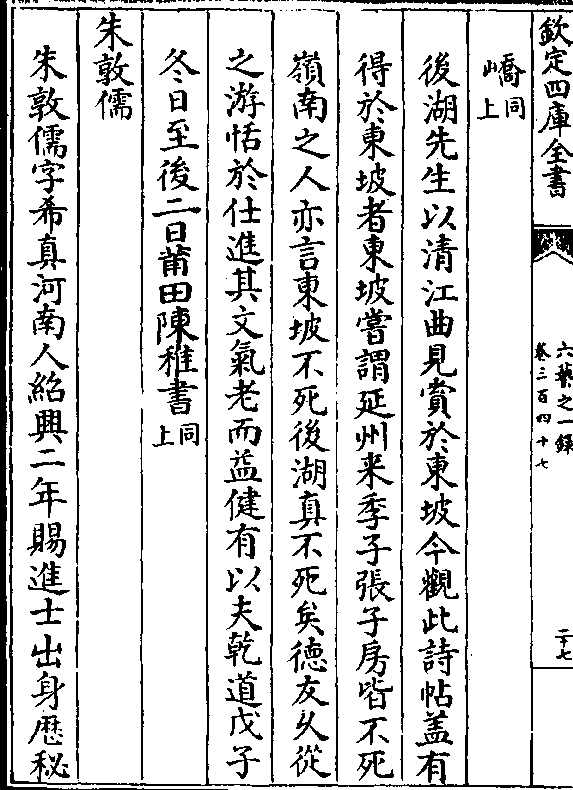 欽定四庫全書
六藝之一錄
卷三百四十七
二十七
嶠同上
後湖先生以清江曲見賞於東坡今觀此詩帖蓋有
得於東坡者東坡嘗謂延州来季子張子房皆不死
嶺南之人亦言東坡不死後湖真不死矣德友乆從
之游恬於仕進其文氣老而益健有以夫乾道戊子
冬日至後二日莆田陳稚書同上
朱敦儒
朱敦儒字希真河南人紹興二年賜進士出身歴秘